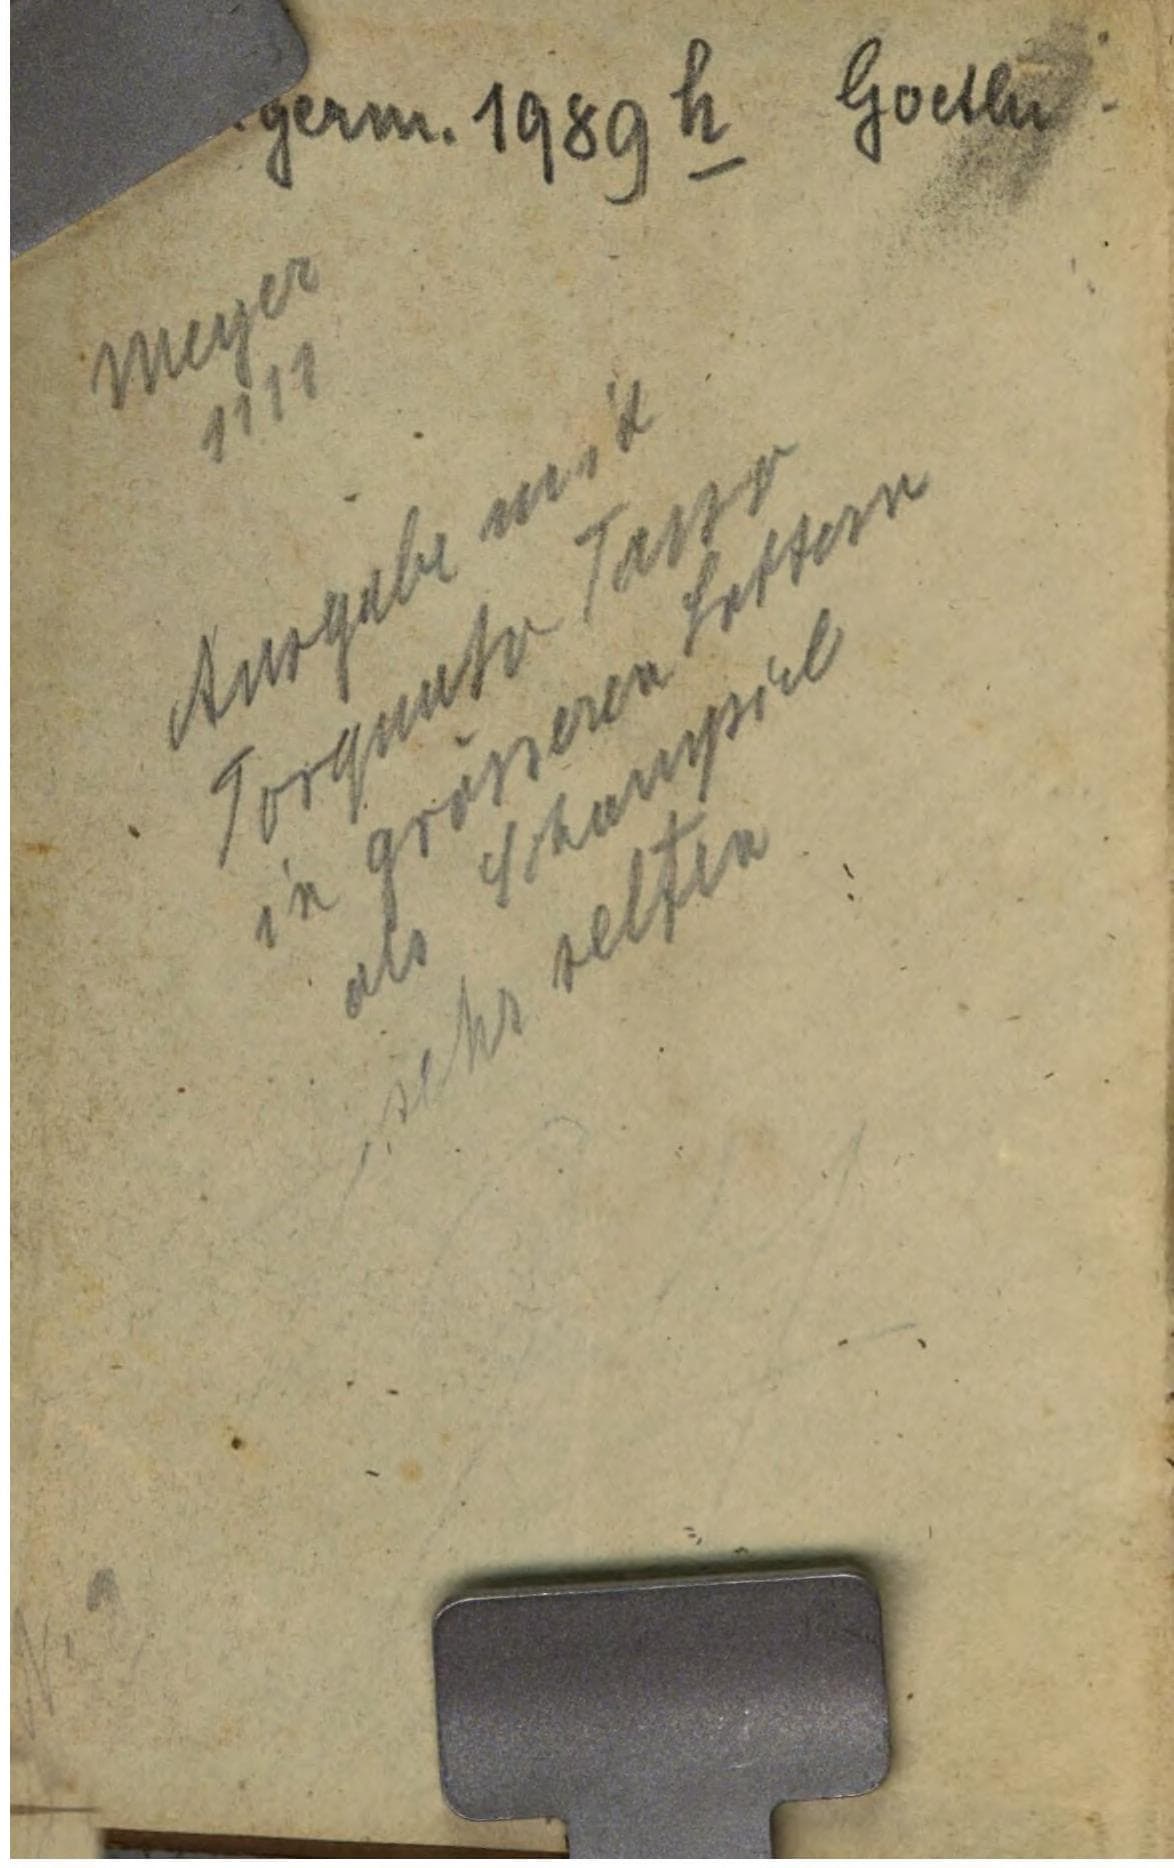 germ. 1989 h Goethe
Meyer
1111
Ausgabe mit
Torquato Tasso
in grösseren Lettern
als Schauspiel
sehr selten